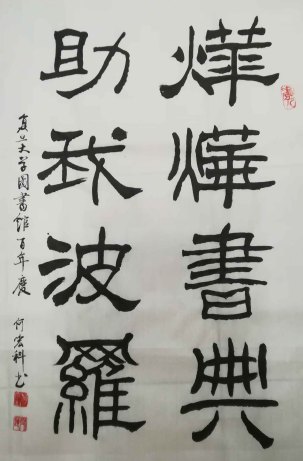 燁燁書典
助我波羅
复旦大学圖書館百年慶
何宏科书